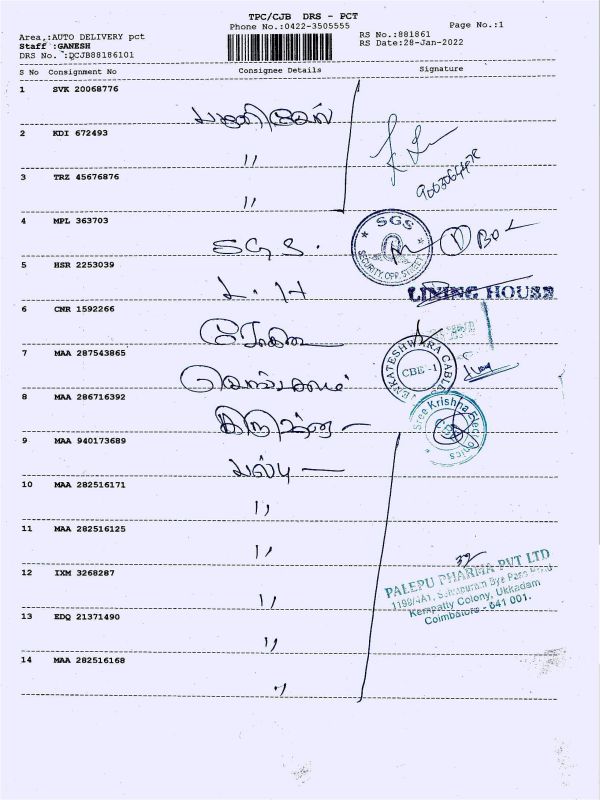 TPC/CJB DRS - PCT
Phone No.:0422-3505555
Page No.:1
Area,:AUTO DELIVERY pct
RS No.:881861
Staff :GANESH
RS Date:28-Jan-2022
DRS No. :DCJB88186101
S No Consignment No Consignee Details Signature
1 SVK 20068776
2 KDI 672493 "
3 TRZ 45676876 "
4 MPL 363703 S.G.S.
SGS
SECURITY, OPP. STREET
5 HSR 2253039 L.H
LINING HOUSE
6 CNR 1592266
7 MAA 287543865
VENKATESHWARA CABLES
CBE-1
8 MAA 286716392
Sree Krishna Electronics
CBE
9 MAA 940173689
10 MAA 282516171 "
11 MAA 282516125 "
12 IXM 3268287 "
PALEPU PHARMA PVT LTD
1198/4A1, Bye Pass Road
Kempatty Colony, Ukkadam
Coimbatore - 641 001.
13 EDQ 21371490 "
14 MAA 282516168 "